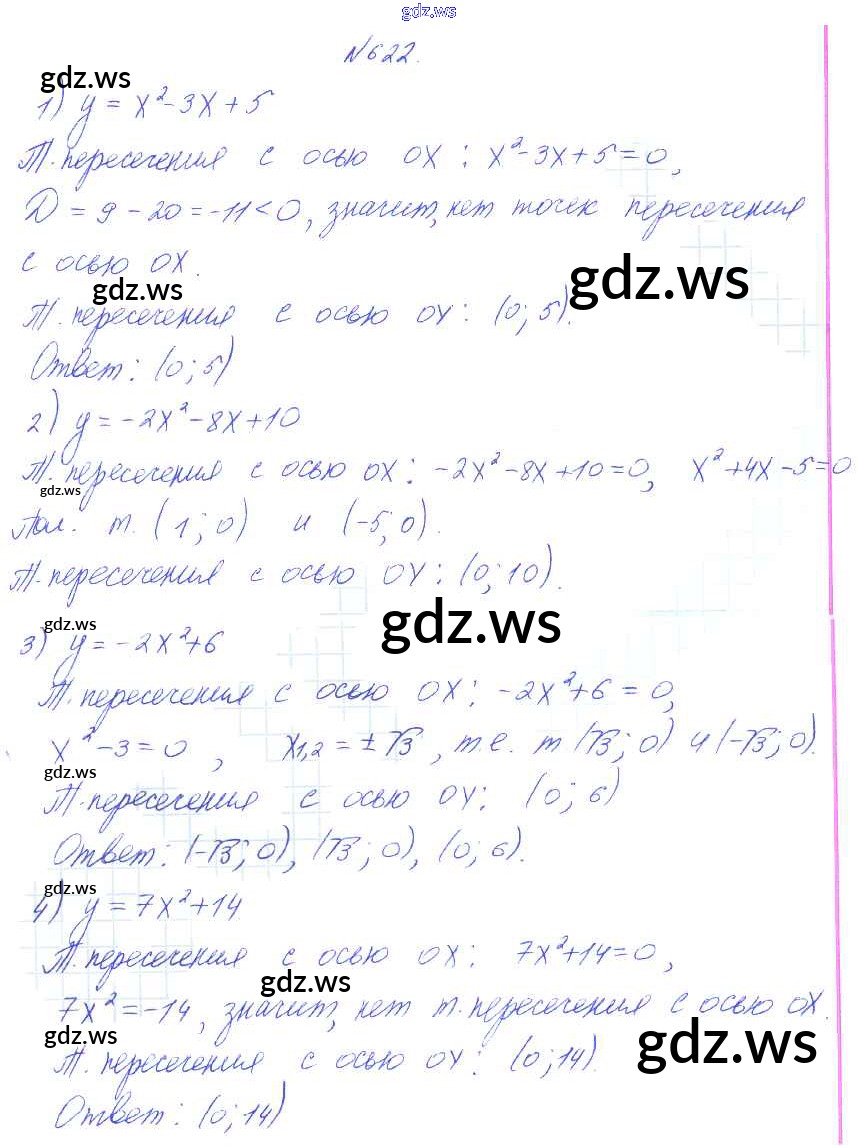 gdz.ws
№622.
gdz.ws
1) y = x² - 3x + 5
Т. пересечения с осью OX: x² - 3x + 5 = 0,
D = 9 - 20 = -11 < 0, значит, нет точек пересечения
с осью OX.
gdz.ws
gdz.ws
Т. пересечения с осью OY: (0; 5).
Ответ: (0; 5)
2) y = -2x² - 8x + 10
Т. пересечения с осью OX: -2x² - 8x + 10 = 0, x² + 4x - 5 = 0
gdz.ws
Пол. т. (1; 0) и (-5; 0).
Т. пересечения с осью OY: (0; 10).
gdz.ws
gdz.ws
3) y = -2x² + 6
Т. пересечения с осью OX: -2x² + 6 = 0,
x² - 3 = 0, x₁,₂ = ±√3, т.е. т (√3; 0) и (-√3; 0).
gdz.ws
Т. пересечения с осью OY: (0; 6)
Ответ: (-√3; 0), (√3; 0), (0; 6).
gdz.ws
4) y = 7x² + 14
Т. пересечения с осью OX: 7x² + 14 = 0,
gdz.ws
7x² = -14, значит, нет т. пересечения с осью OX.
gdz.ws
gdz.ws
Т. пересечения с осью OY: (0; 14).
Ответ: (0; 14)